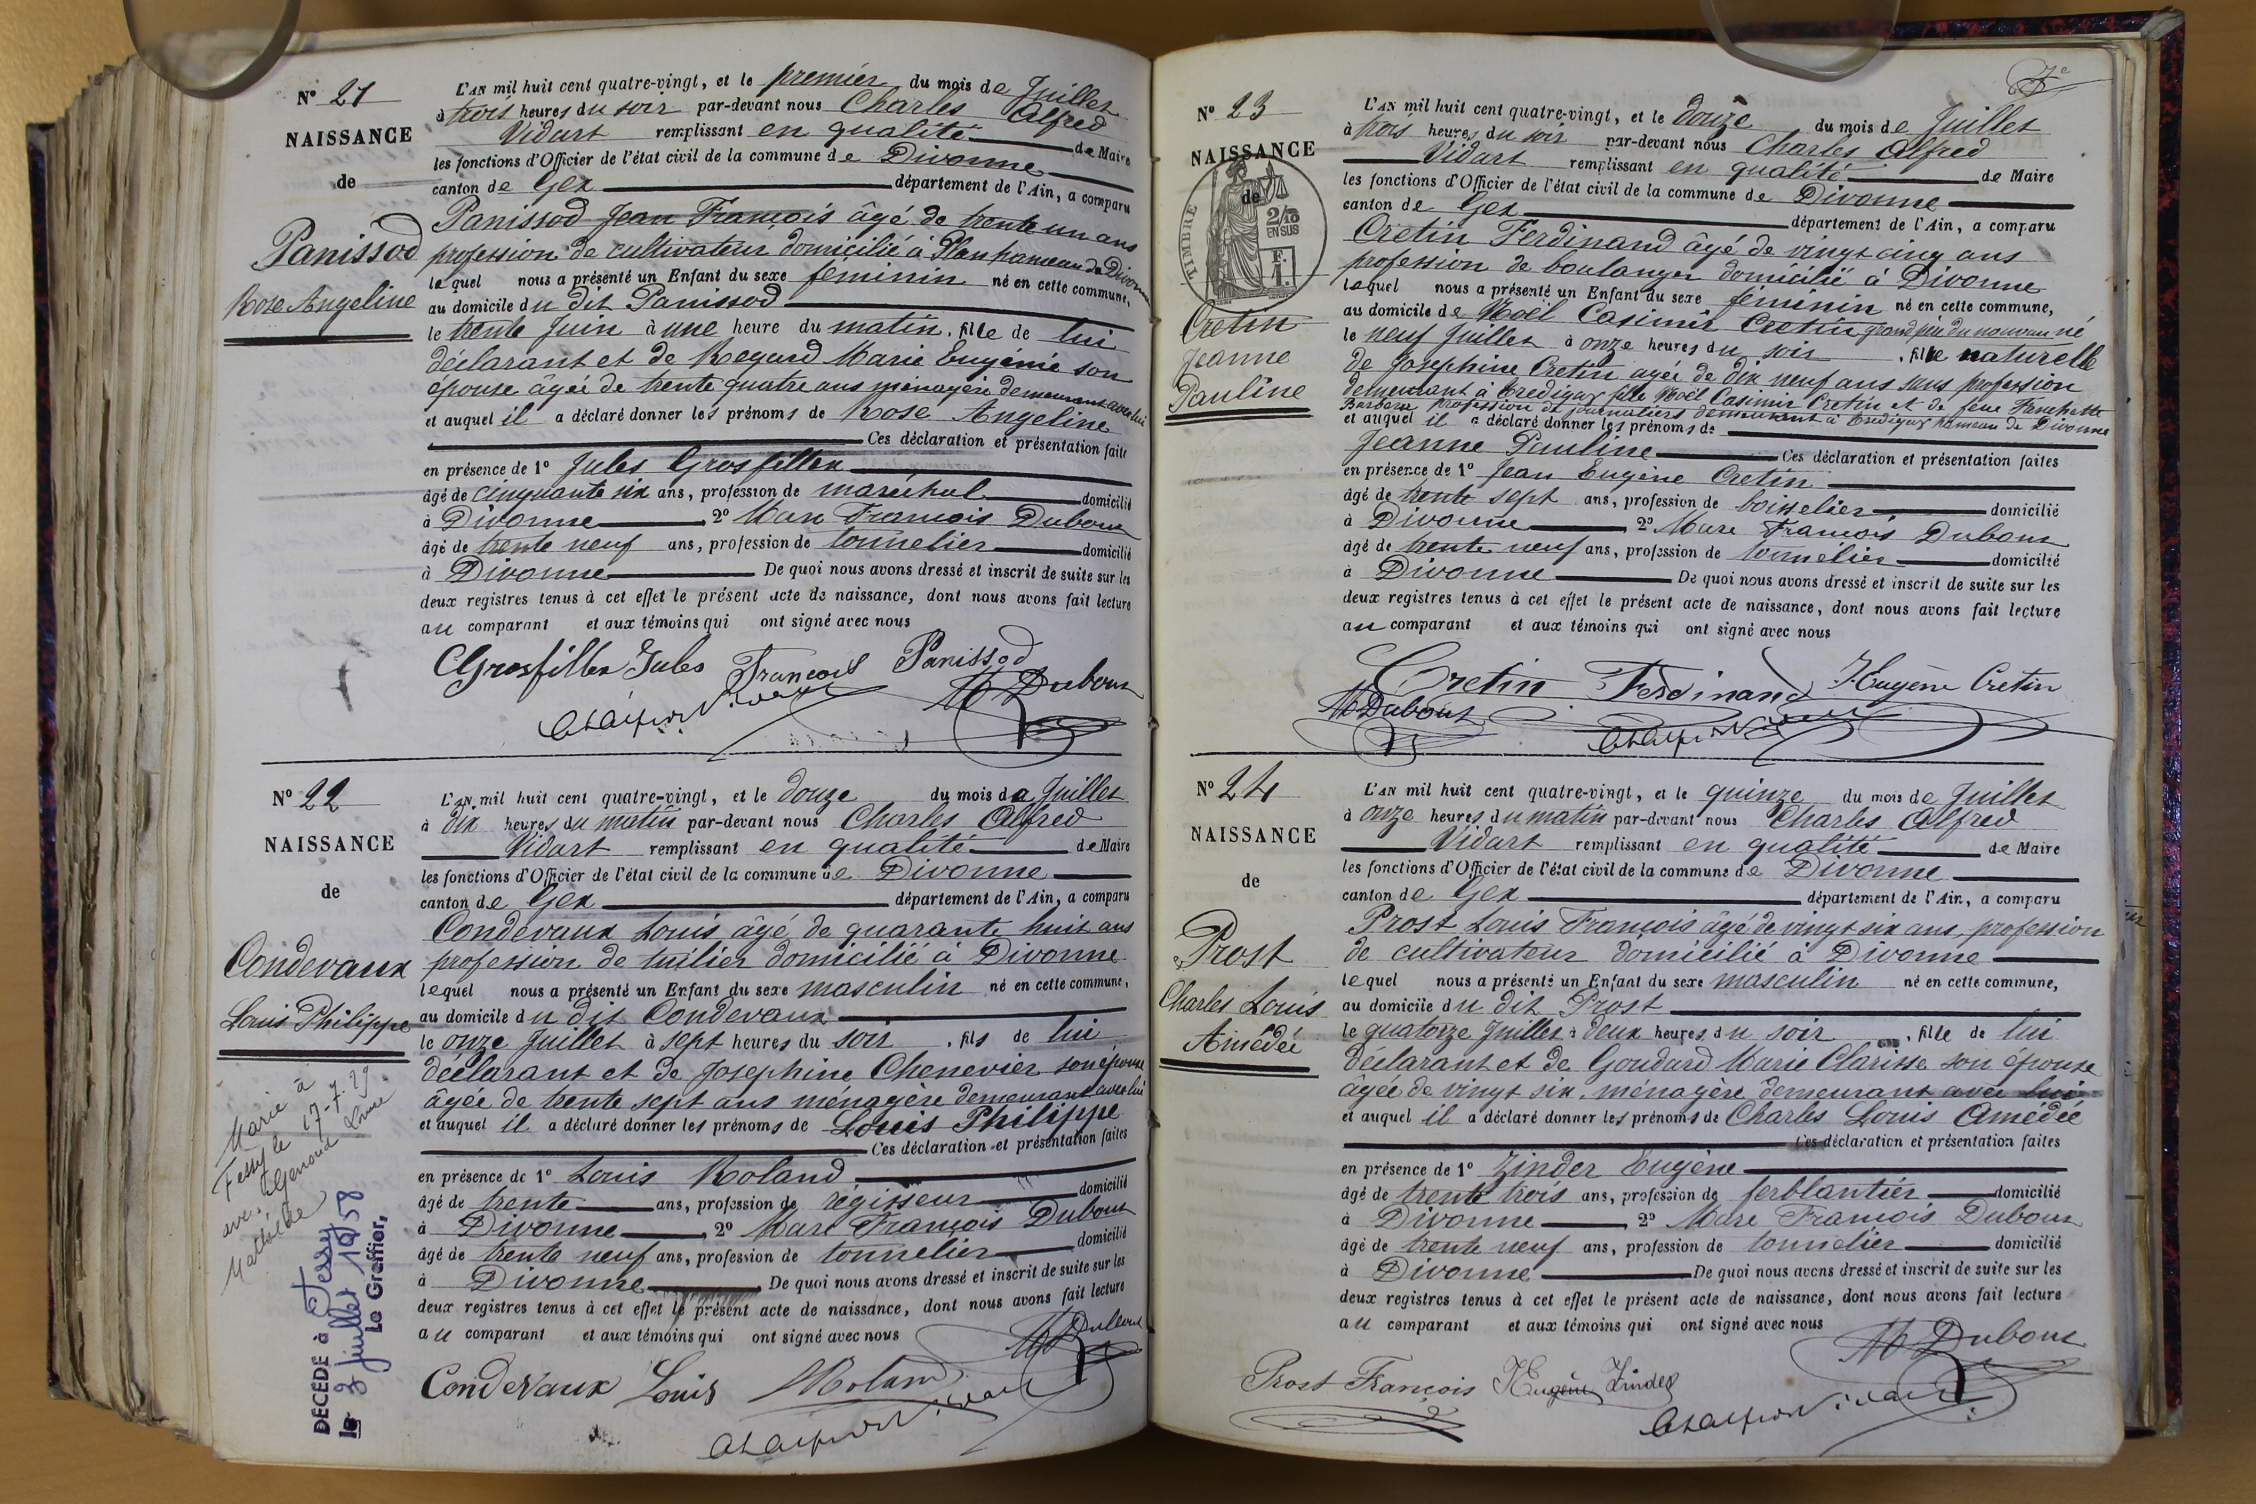 N° 21
NAISSANCE
de
Panissod
Rose Angeline
L'AN mil huit cent quatre-vingt, et le premier du mois de Juillet
à trois heures du soir par-devant nous Charles Alfred
Vidart remplissant en qualité de Maire
les fonctions d'Officier de l'état civil de la commune de Divonne
canton de Gex département de l'Ain, a comparu
Panissod Jean François âgé de trente un ans
profession de cultivateur domicilié à Plan hameau de Divonne
lequel nous a présenté un Enfant du sexe féminin né en cette commune,
au domicile du dit Panissod
le trente Juin à une heure du matin, fille de lui
déclarant et de Regard Marie Eugénie son
épouse âgée de trente quatre ans ménagère demeurant avec lui
et auquel il a déclaré donner les prénoms de Rose Angeline
Ces déclaration et présentation faite
en présence de 1° Jules Grosfillex
âgé de cinquante six ans, profession de maréchal domicilié
à Divonne 2° Marc François Dubout
âgé de trente neuf ans, profession de tonnelier domicilié
à Divonne De quoi nous avons dressé et inscrit de suite sur les
deux registres tenus à cet effet le présent acte de naissance, dont nous avons fait lecture
au comparant et aux témoins qui ont signé avec nous
Grosfillex Jules François Panissod
M Dubout
N° 22
NAISSANCE
de
Condevaux
Louis Philippe
Marié à
Fessy le 17-7-29
avec Genoud Louise
Mathilde
DÉCÉDÉ à Fessy
le 3 Juillet 1958
Le Greffier,
L'AN mil huit cent quatre-vingt, et le douze du mois de Juillet
à dix heures du matin par-devant nous Charles Alfred
Vidart remplissant en qualité de Maire
les fonctions d'Officier de l'état civil de la commune de Divonne
canton de Gex département de l'Ain, a comparu
Condevaux Louis âgé de quarante huit ans
profession de tuilier domicilié à Divonne
lequel nous a présenté un Enfant du sexe masculin né en cette commune,
au domicile du dit Condevaux
le onze Juillet à sept heures du soir, fils de lui
déclarant et de Josephine Chenevier son épouse
âgée de trente sept ans ménagère demeurant avec lui
et auquel il a déclaré donner les prénoms de Louis Philippe
Ces déclaration et présentation faites
en présence de 1° Louis Roland
âgé de trente ans, profession de régisseur domicilié
à Divonne 2° Marc François Dubout
âgé de trente neuf ans, profession de tonnelier domicilié
à Divonne De quoi nous avons dressé et inscrit de suite sur les
deux registres tenus à cet effet le présent acte de naissance, dont nous avons fait lecture
au comparant et aux témoins qui ont signé avec nous
M Dubout
Condevaux Louis L Roland
7e
N° 23
NAISSANCE
de
TIMBRE
2/10
EN SUS
F.
1.
Cretin
Jeanne
Pauline
L'AN mil huit cent quatre-vingt, et le douze du mois de Juillet
à trois heures du soir par-devant nous Charles Alfred
Vidart remplissant en qualité de Maire
les fonctions d'Officier de l'état civil de la commune de Divonne
canton de Gex département de l'Ain, a comparu
Cretin Ferdinand âgé de vingt cinq ans
profession de boulanger domicilié à Divonne
lequel nous a présenté un Enfant du sexe féminin né en cette commune,
au domicile de Noël Casimir Cretin grand père du nouveau né
le neuf Juillet à onze heures du soir, fille naturelle
de Josephine Cretin agée de dix neuf ans sans profession
demeurant à Credigny fille Noël Casimir Cretin et de feue Fanchette
Barbara profession de journaliers demeurant à Credigny hameau de Divonne
et auquel il a déclaré donner les prénoms de
Jeanne Pauline Ces déclaration et présentation faites
en présence de 1° Jean Eugène Cretin
âgé de trente sept ans, profession de boisselier domicilié
à Divonne 2° Marc François Dubout
âgé de trente neuf ans, profession de tonnelier domicilié
à Divonne De quoi nous avons dressé et inscrit de suite sur les
deux registres tenus à cet effet le présent acte de naissance, dont nous avons fait lecture
au comparant et aux témoins qui ont signé avec nous
Cretin Ferdinand J Eugène Cretin
M Dubout
N° 24
NAISSANCE
de
Prost
Charles Louis
Amédée
L'AN mil huit cent quatre-vingt, et le quinze du mois de Juillet
à onze heures du matin par-devant nous Charles Alfred
Vidart remplissant en qualité de Maire
les fonctions d'Officier de l'état civil de la commune de Divonne
canton de Gex département de l'Ain, a comparu
Prost Louis François âgé de vingt six ans, profession
de cultivateur domicilié à Divonne
lequel nous a présenté un Enfant du sexe masculin né en cette commune,
au domicile du dit Prost
le quatorze Juillet à deux heures du soir, fille de lui
déclarant et de Goudard Marie Clarisse son épouse
âgée de vingt six ménagère demeurant avec lui
et auquel il a déclaré donner les prénoms de Charles Louis Amédée
Ces déclaration et présentation faites
en présence de 1° Zinder Eugène
âgé de trente trois ans, profession de ferblantier domicilié
à Divonne 2° Marc François Dubout
âgé de trente neuf ans, profession de tonnelier domicilié
à Divonne De quoi nous avons dressé et inscrit de suite sur les
deux registres tenus à cet effet le présent acte de naissance, dont nous avons fait lecture
au comparant et aux témoins qui ont signé avec nous
M Dubout
Prost François Eugène Zinder